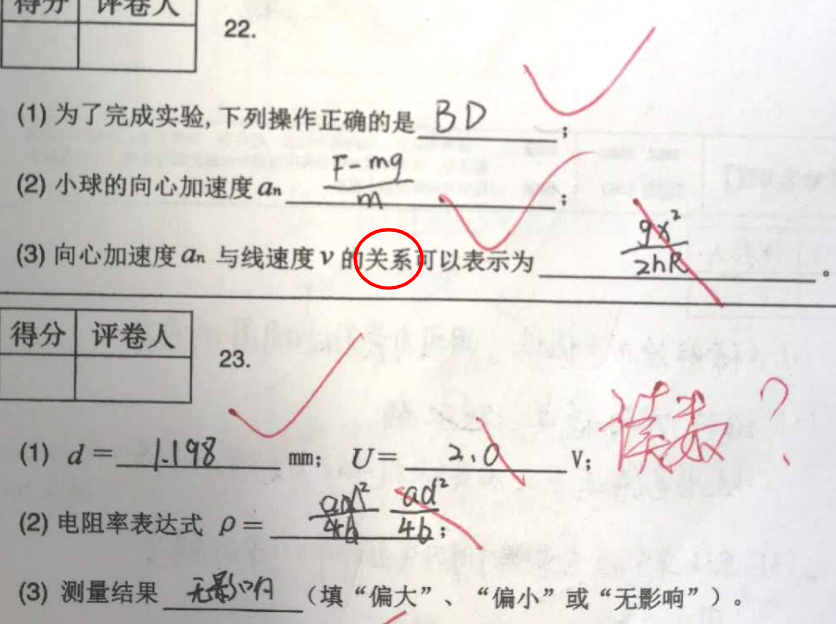 得分 评卷人
22.
(1) 为了完成实验,下列操作正确的是 BD ;
(2) 小球的向心加速度 aₙ F-mg/m ;
(3) 向心加速度 aₙ 与线速度 v 的关系可以表示为 gx²/2hR 。
得分 评卷人
23.
(1) d = 1.198 mm; U = 2.0 V; 读数?
(2) 电阻率表达式 ρ = ad²/4b ad²/4b ;
(3) 测量结果 无影响 (填“偏大”、“偏小”或“无影响”)。